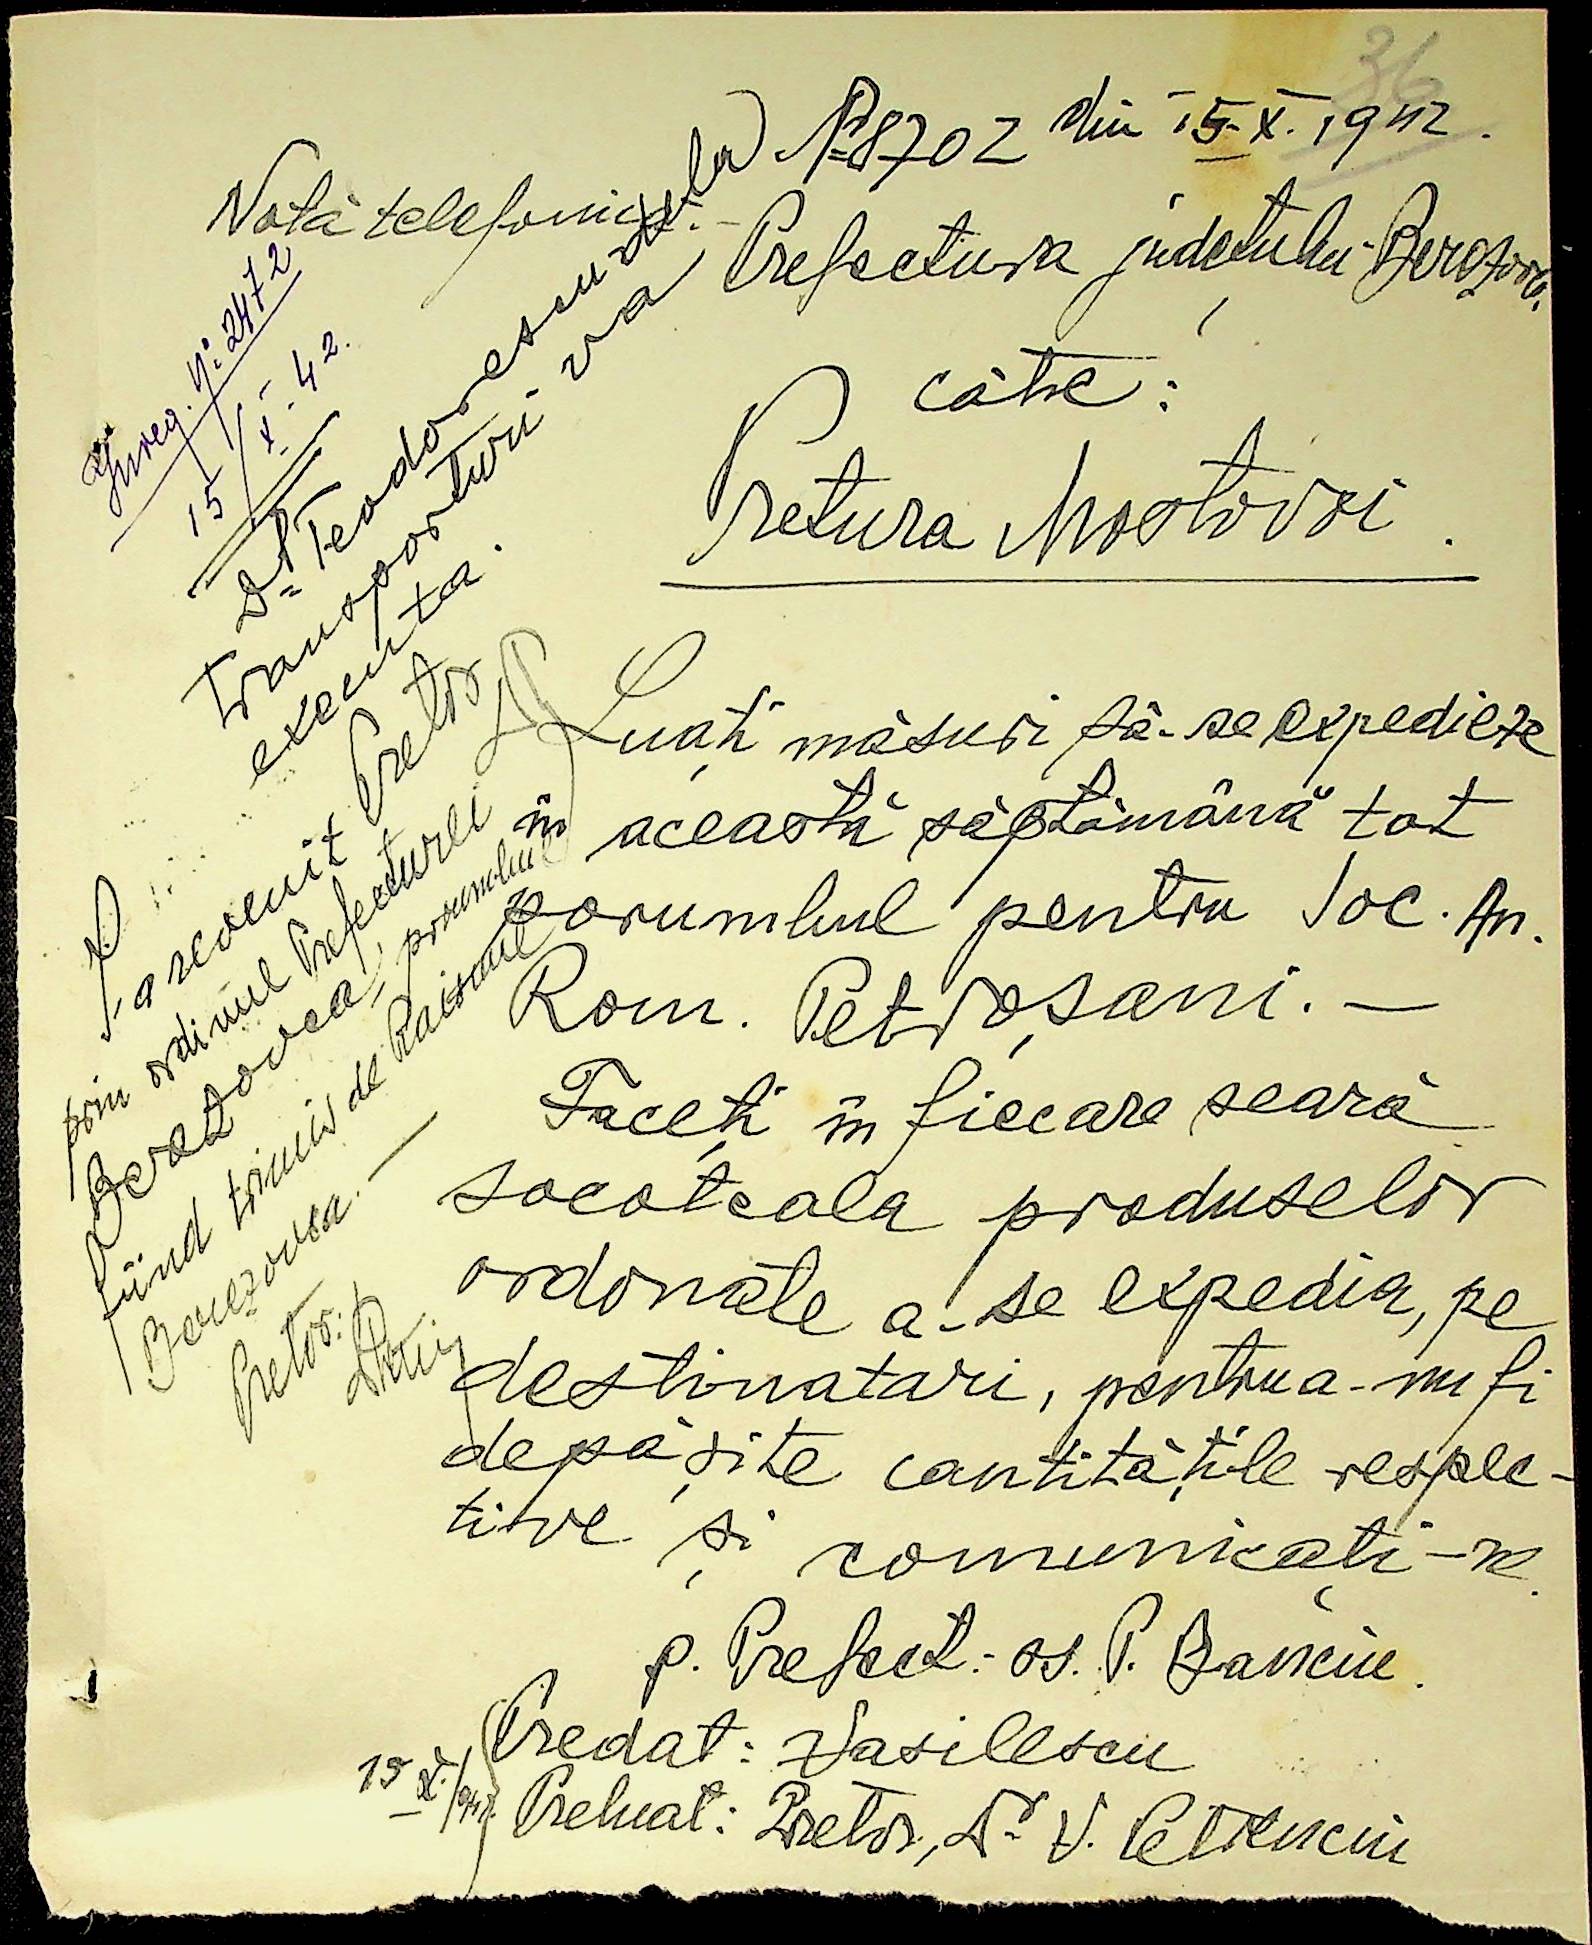 36
Nº 8702 din 15.X.1942.
Notă telefonică.-
Prefectura județului Berezovca,
către:
Pretura Mostovoi.
Luați măsuri să-se expedieze
în această săptămână tot
porumbul pentru Soc. An.
Rom. Petroșani.—
Faceți în fiecare seară
socoteala produselor
ordonate a-se expedia, pe
destinatari, pentru a-nu fi
depășite cantitățile respec-
tive și comunicați-ne.
p. Prefect:- ss. P. Banciu.
Predat: Vasilescu
15 X./942. Preluat: Pretor, Dr. V. Petrenciu
Inreg. Nº 2472
15/X.42.
Dl. Teodorescu dela
transporturi va
executa.
Pretor
S'a revenit
prin ordinul Prefecturei
Berezovca, porumbul
fiind trimis de Raionul
Berezovca.—
Pretor: